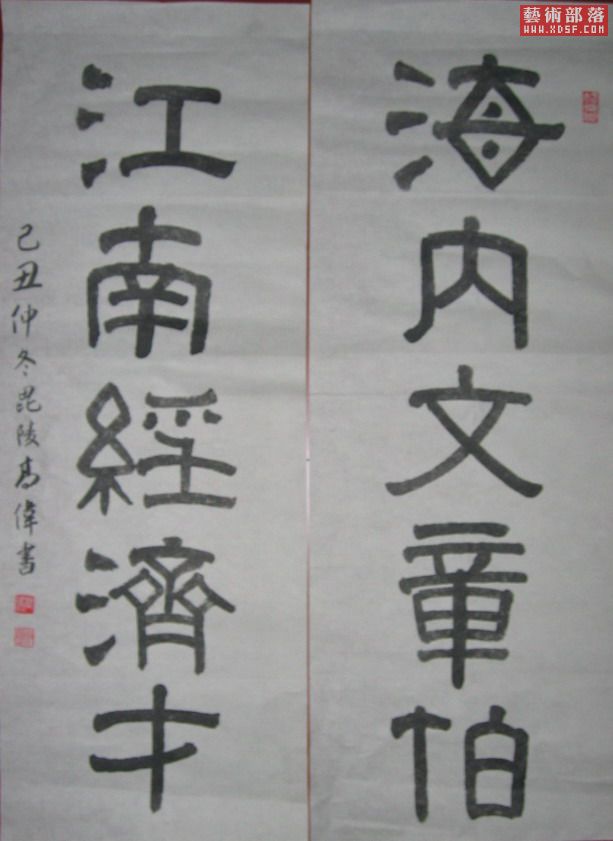 藝術部落
WWW.XDSF.COM
海内文章伯
江南經濟才
己丑仲冬毘陵高偉書